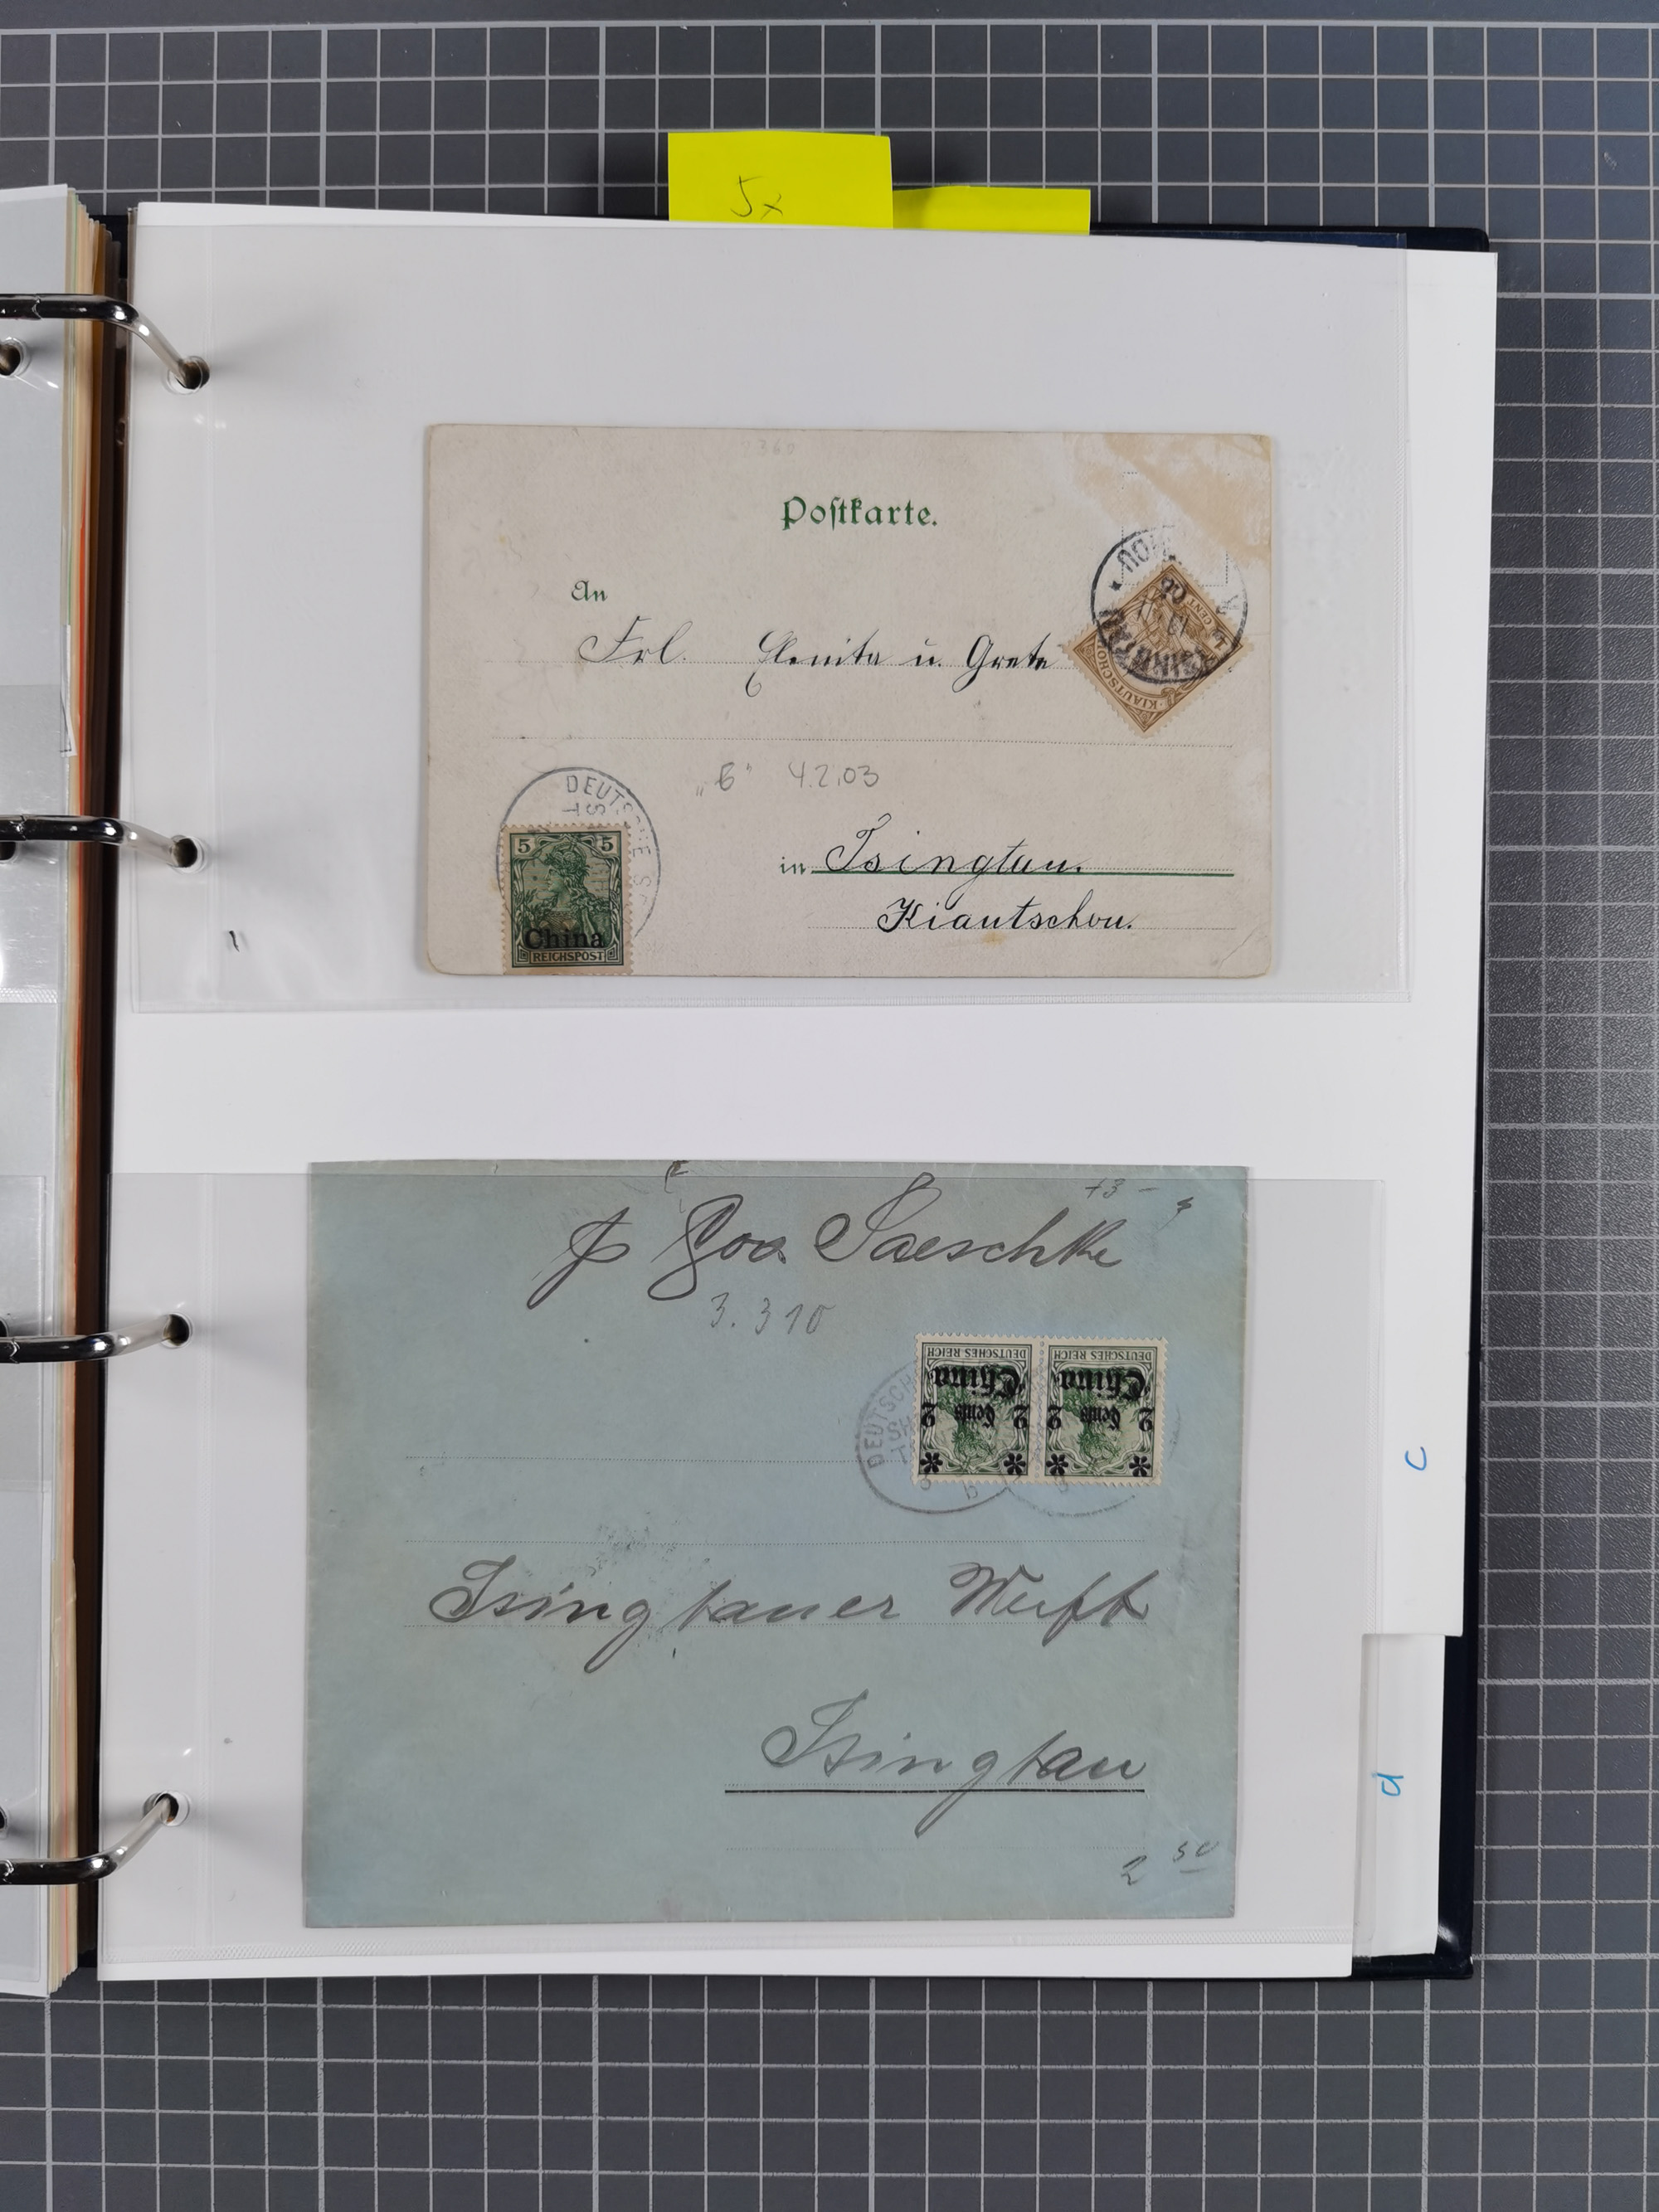 5x
2360
Postkarte.
An
Frl. Elenita u. Grete
KIAUTSCHOU
1 CENT
TSINGTAU
„6“ 4.2.03
DEUTSCHE S
5 5
China
REICHSPOST
in Tsingtau.
Kiautschou.
1
+3 –
Saeschke
3. 3 10
DEUTSCHES REICH DEUTSCHES REICH
China China
2 Cents 2 2 Cents 2
DEUTSCH
b
Tsingtauer Werft
Tsingtau
2 50
c
d